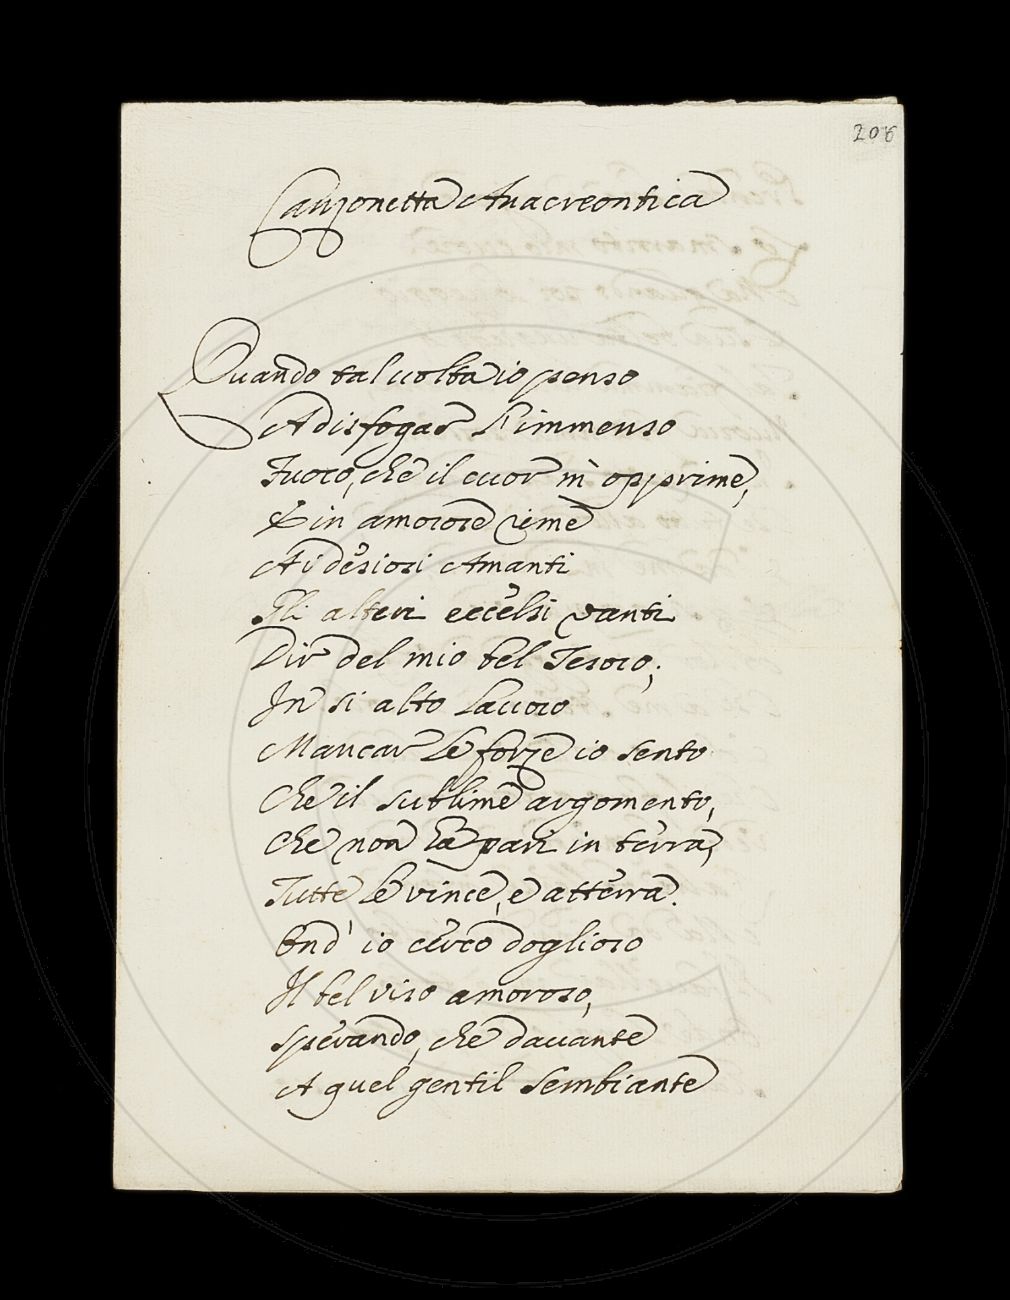 206
Canzonetta Anacreontica
Quando tal uolta io penso
A disfogar l'immenso
Fuoco, che il cuor m'opprime,
E in amorose rime
Ai desiosi Amanti
Gli alteri eccelsi vanti
Dir del mio bel Tesoro;
In si alto lauoro
Mancar le forze io sento
Che il sublime argomento,
Che non ha pari in terra,
Tutte le vince, e atterra.
Ond' io cerco doglioso
Il bel viso amoroso,
Sperando, che dauante
A quel gentil sembiante